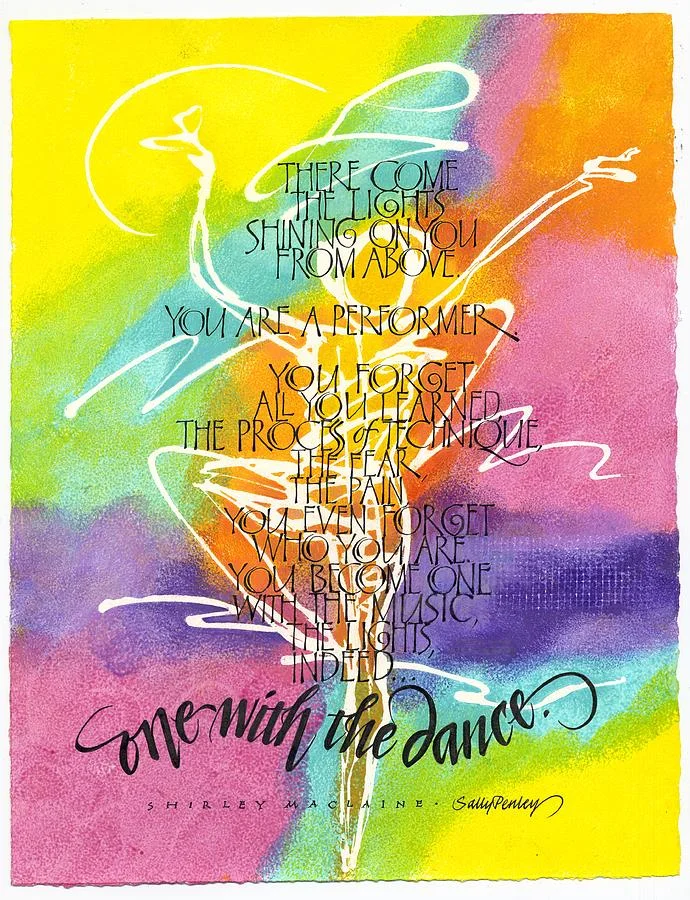 THERE COME
THE LIGHTS
SHINING ON YOU
FROM ABOVE.
YOU ARE A PERFORMER.
YOU FORGET
ALL YOU LEARNED,
THE PROCES of TECHNIQUE,
THE FEAR,
THE PAIN,
YOU EVEN FORGET
WHO YOU ARE.
YOU BECOME ONE
WITH THE MUSIC,
THE LIGHTS,
INDEED...
one with the dance.
SHIRLEY MACLAINE · Sally Penley